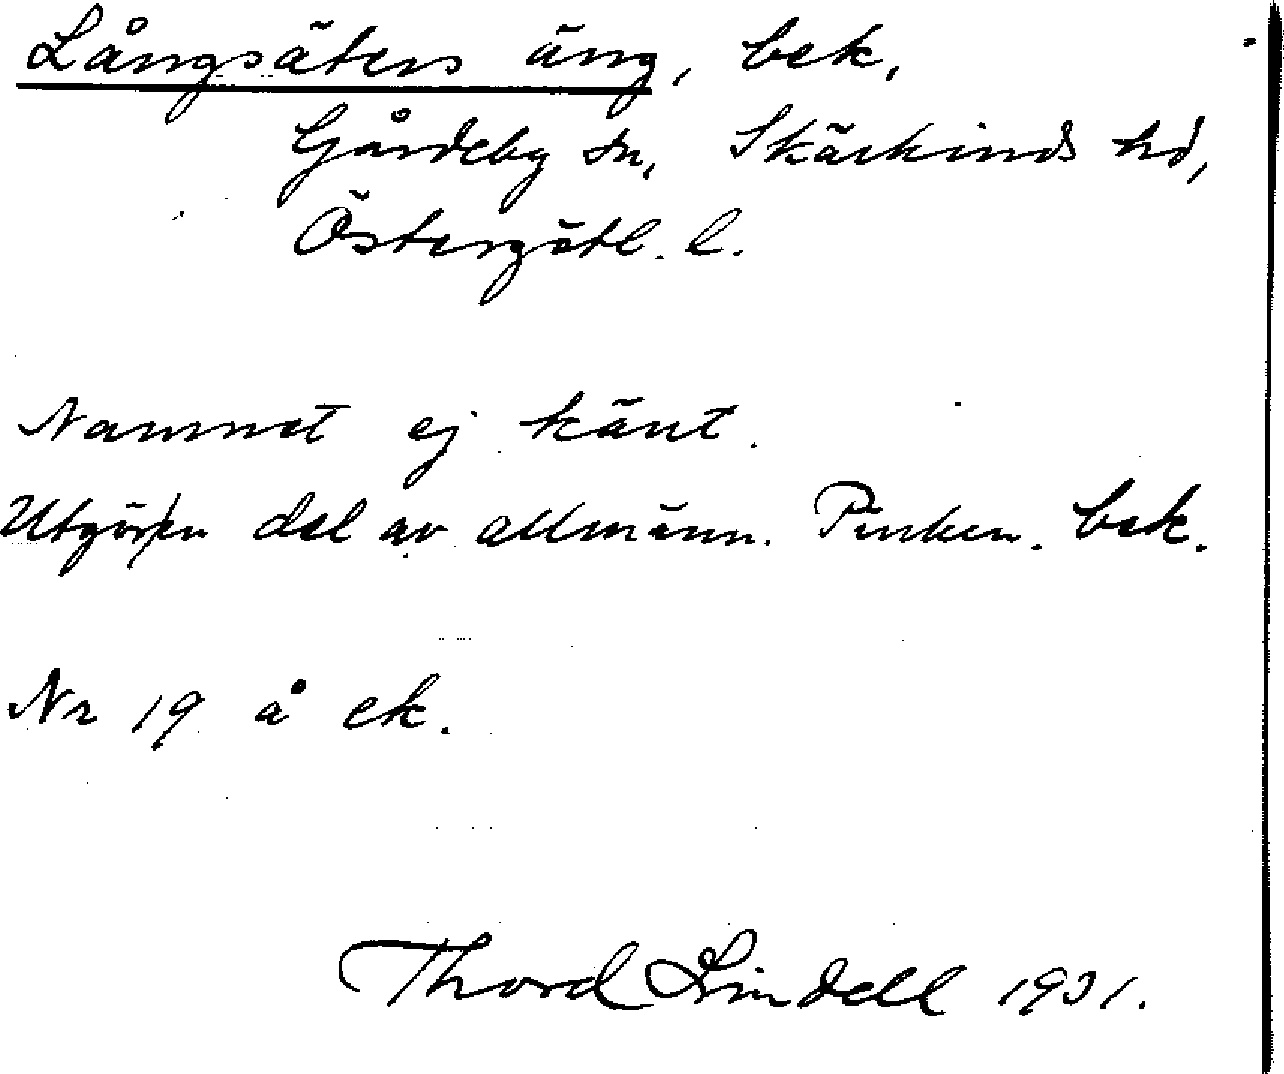 Långsäters äng, bek.
Gårdeby sn, Skärkinds hd,
Östergötl. l.
Namnet ej känt.
Utgör en del av allmänn. bek.
Nr 19 å ek.
Thord Lindell 1931.